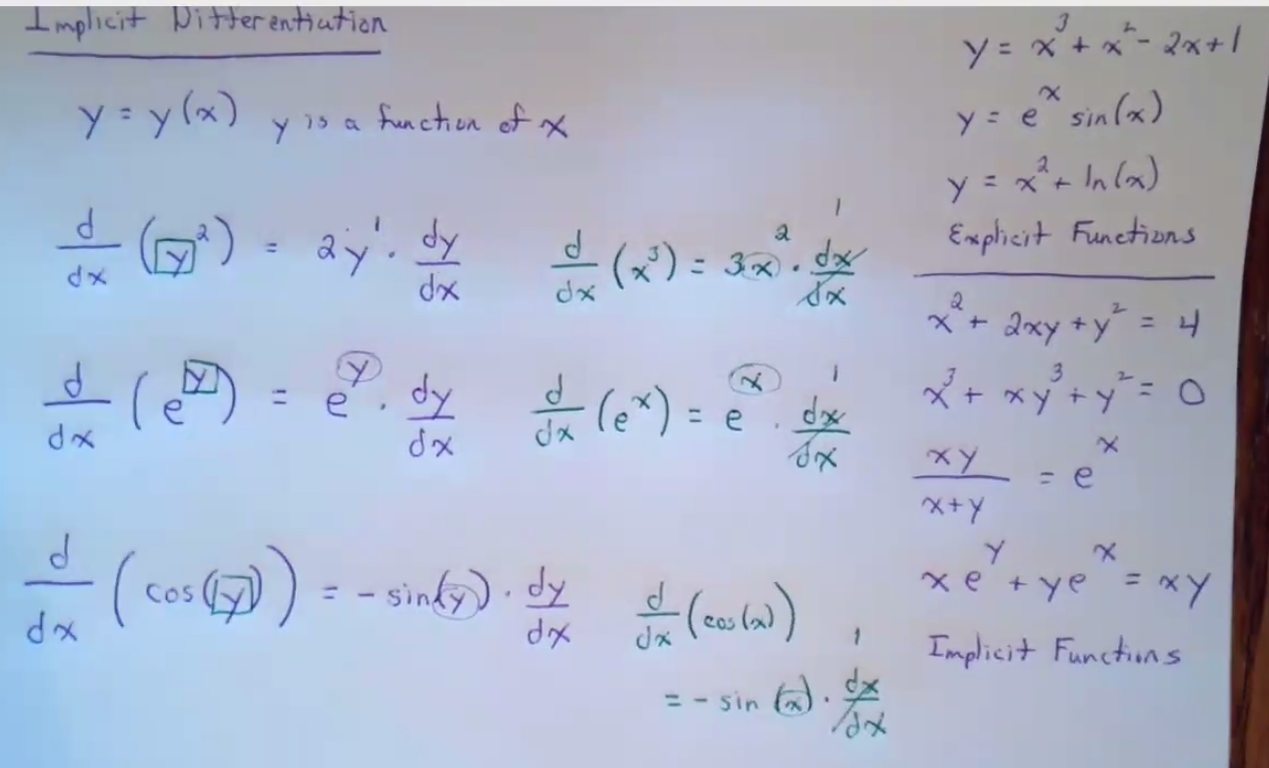 Implicit Differentiation
y = y(x) y is a function of x
d/dx (y²) = 2y¹ · dy/dx
d/dx (x³) = 3x² · dx/dx 1
d/dx (e^y) = e^y · dy/dx
d/dx (e^x) = e^x · dx/dx 1
d/dx (cos(y)) = - sin(y) · dy/dx
d/dx (cos(x))
= - sin (x) · dx/dx 1
y = x³ + x² - 2x + 1
y = e^x sin(x)
y = x² + ln(x)
Explicit Functions
x² + 2xy + y² = 4
x³ + xy³ + y² = 0
xy/x+y = e^x
xe^y + ye^x = xy
Implicit Functions